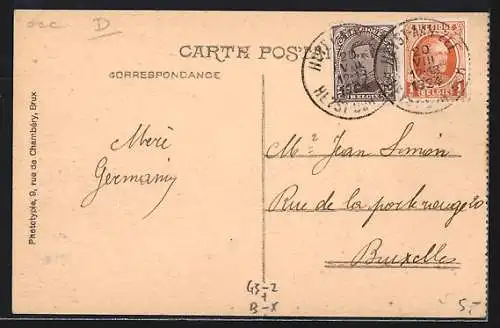 D
CARTE POSTALE
CORRESPONDANCE
Phototypie, 9, rue de Chambéry, Brux
Meré
Germaniy
Mr Jean Simon
Rue de la porte rouge 20
Bruxelles
BELGIE
VIII
1924
HEYST
43-2
+
B-X
5,-